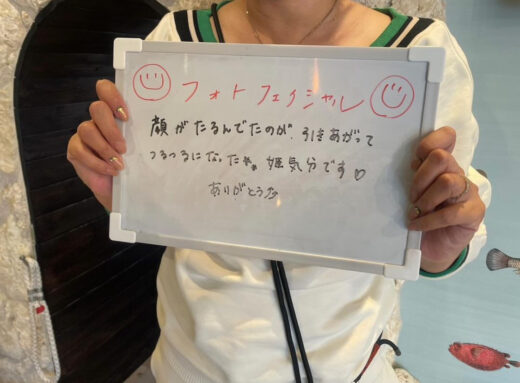 フォトフェイシャル
顔がたるんでたのが、引きあがって
つるつるになったや。 嬉気分です♡
ありがとう